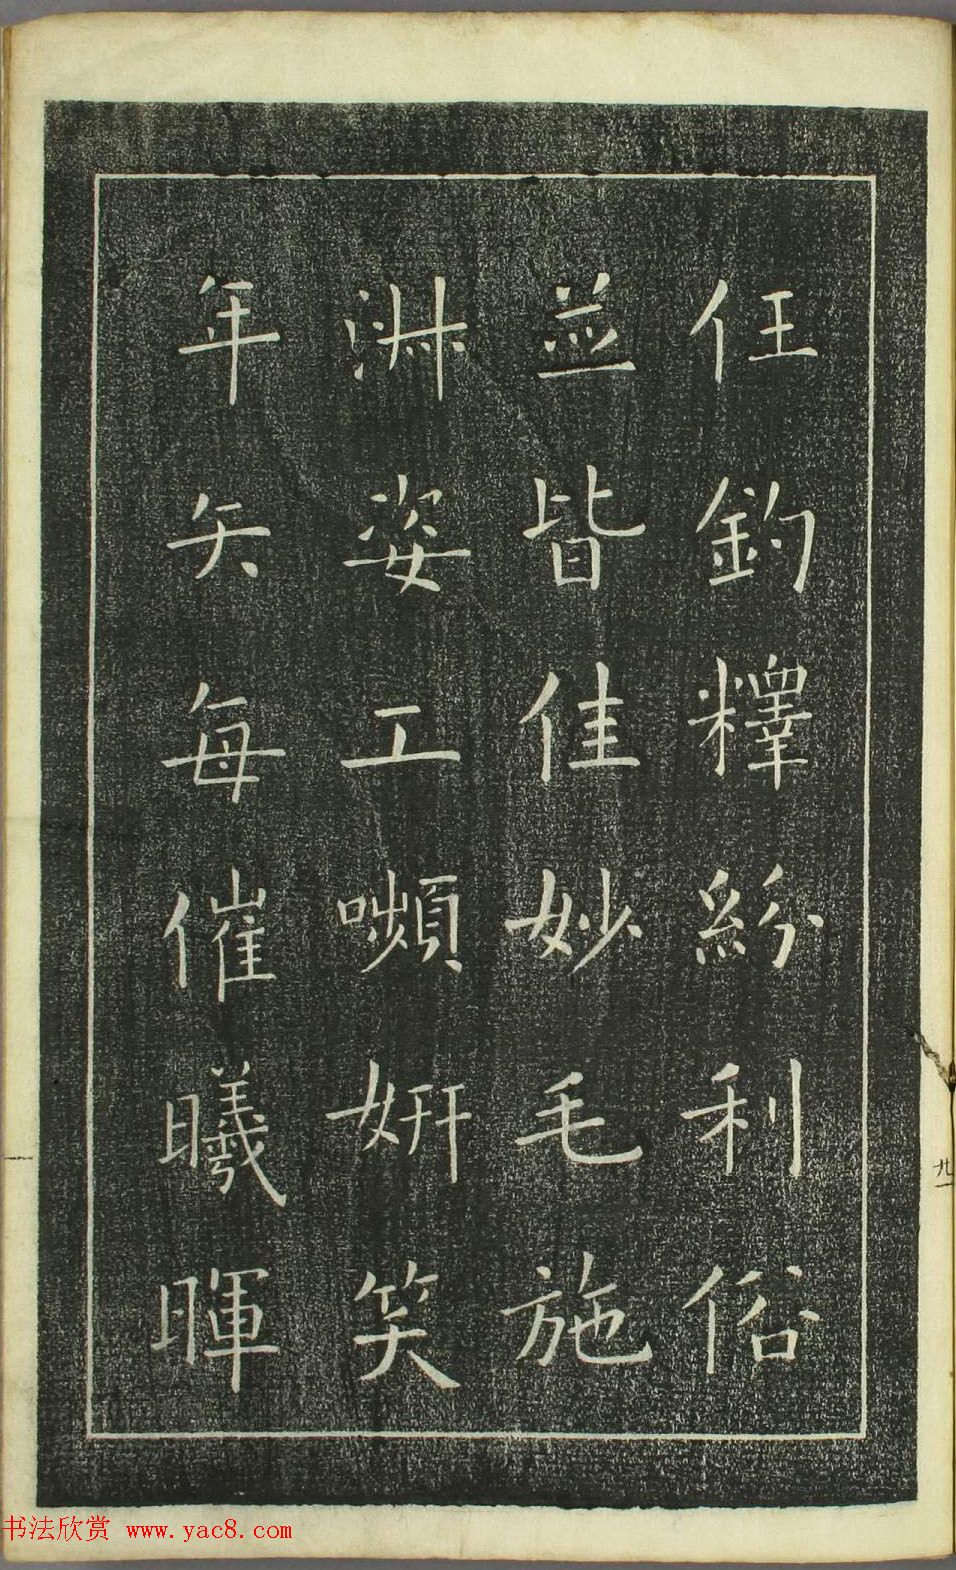 任釣釋紛利俗
並皆佳妙毛施
淑姿工嚬妍笑
年矢每催曦暉
廿一
书法欣赏 www.yac8.com